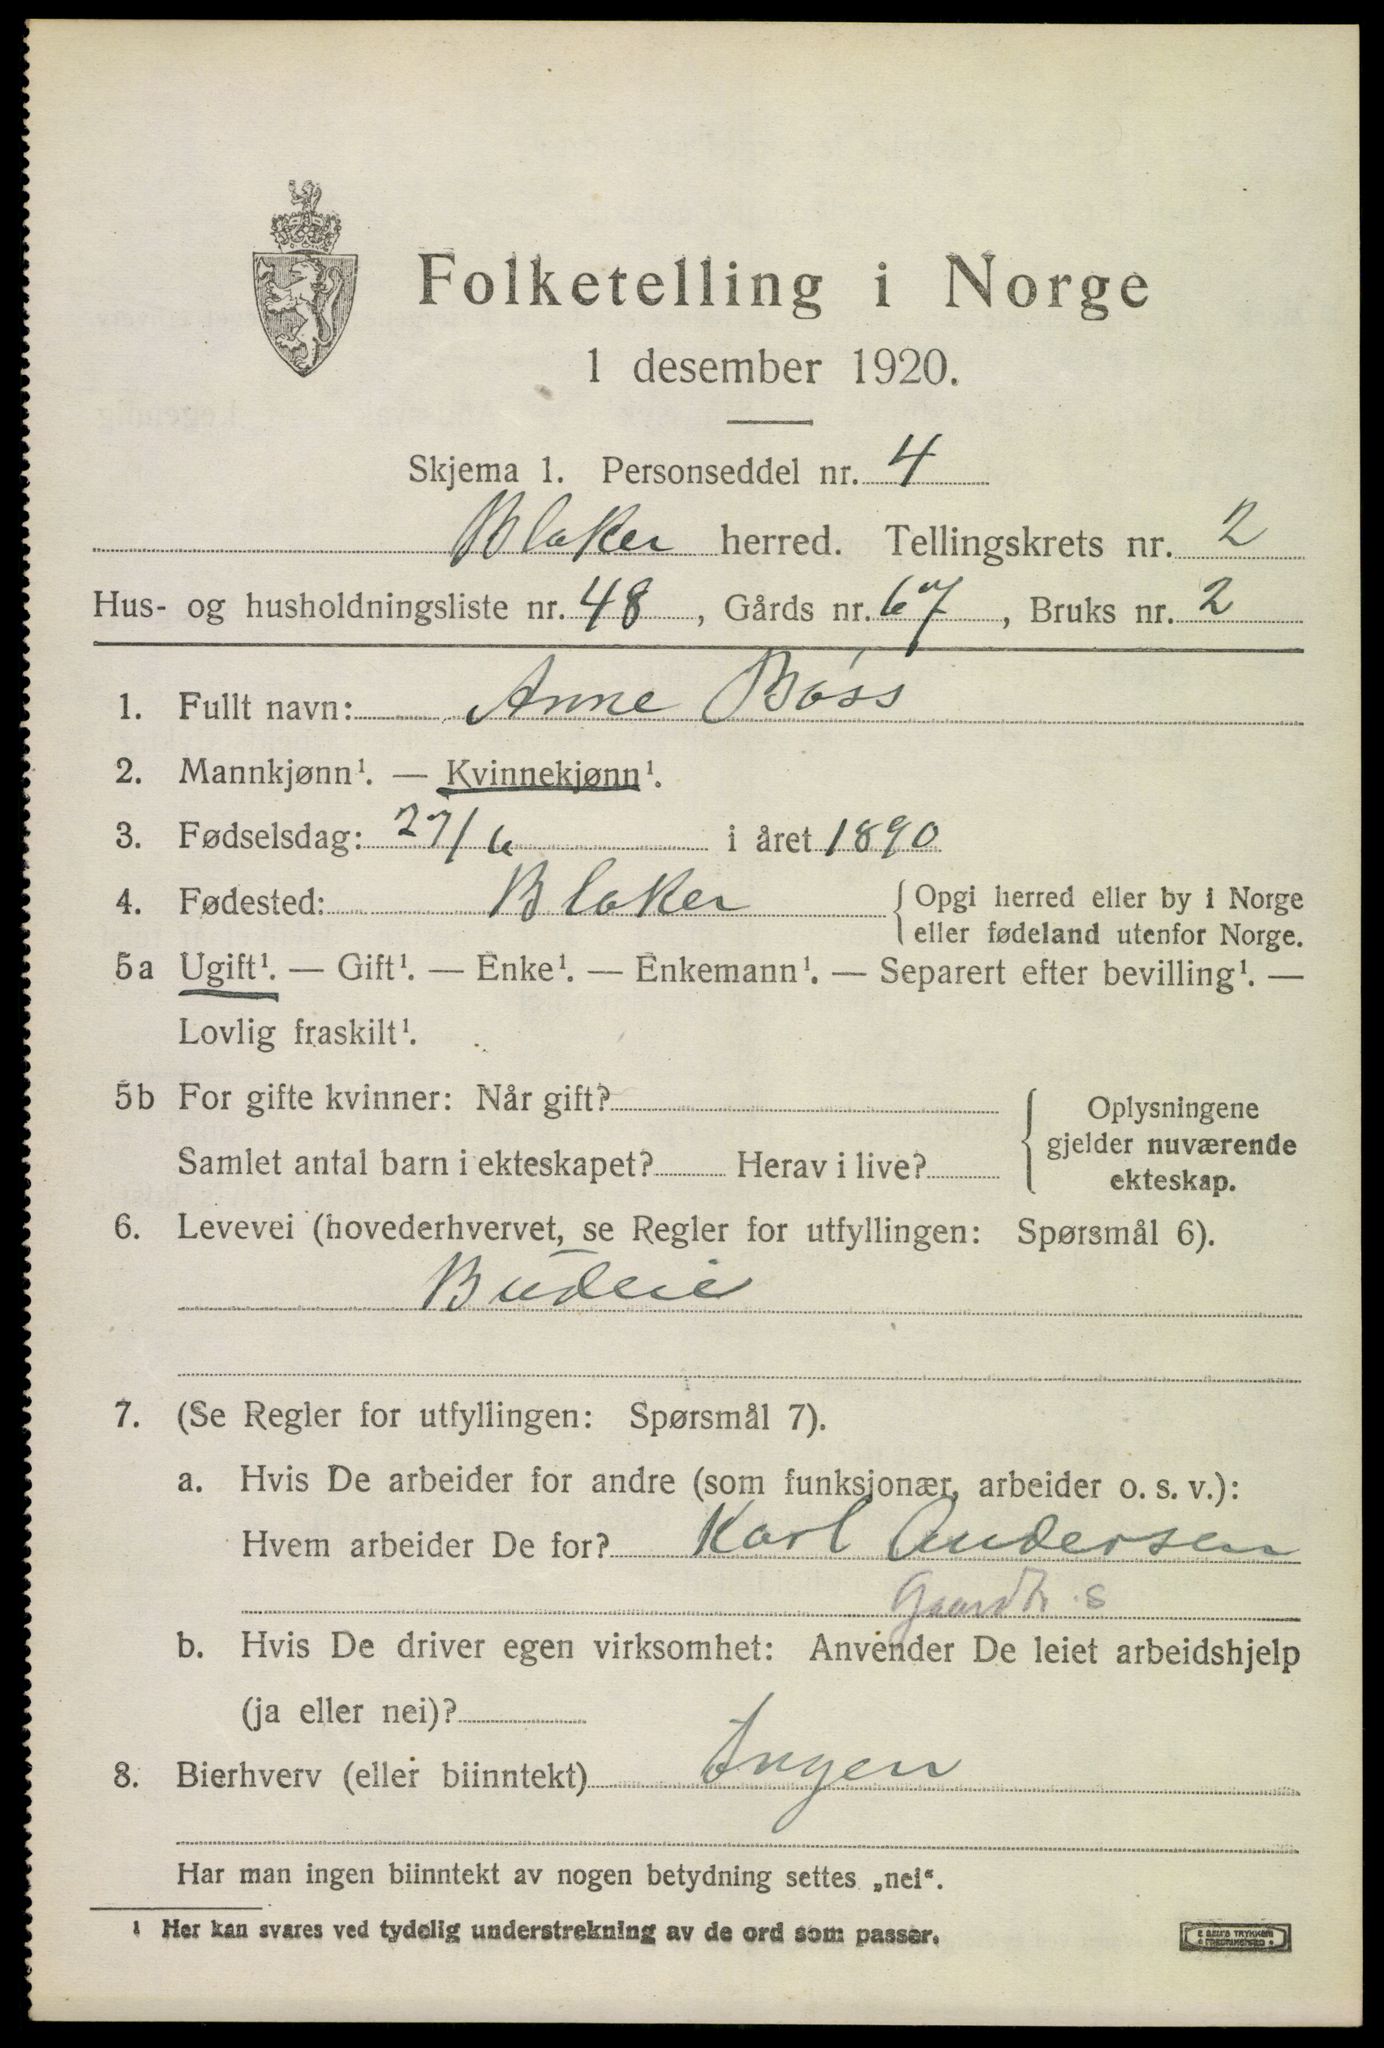 Folketelling i Norge
1 desember 1920.
Skjema 1. Personseddel nr. 4
Blaker herred. Tellingskrets nr. 2
Hus- og husholdningsliste nr. 48, Gårds nr. 67, Bruks nr. 2
1. Fullt navn: Anne Bøss
2. Mannkjønn¹. — Kvinnekjønn¹.
3. Fødselsdag: 27/6 i året 1890
4. Fødested: Blaker { Opgi herred eller by i Norge
eller fødeland utenfor Norge.
5a Ugift¹. — Gift¹. — Enke¹. — Enkemann¹. — Separert efter bevilling¹. —
Lovlig fraskilt¹.
5b For gifte kvinner: Når gift?
Samlet antal barn i ekteskapet? Herav i live?
{ Oplysningene
gjelder nuværende
ekteskap.
6. Levevei (hovederhvervet, se Regler for utfyllingen: Spørsmål 6).
Budeie
7. (Se Regler for utfyllingen: Spørsmål 7).
a. Hvis De arbeider for andre (som funksjonær, arbeider o. s. v.):
Hvem arbeider De for? Karl Andersen
Gaardbr. s
b. Hvis De driver egen virksomhet: Anvender De leiet arbeidshjelp
(ja eller nei)?
8. Bierhverv (eller biinntekt) Ingen
Har man ingen biinntekt av nogen betydning settes „nei“.
1 Her kan svares ved tydelig understrekning av de ord som passer.